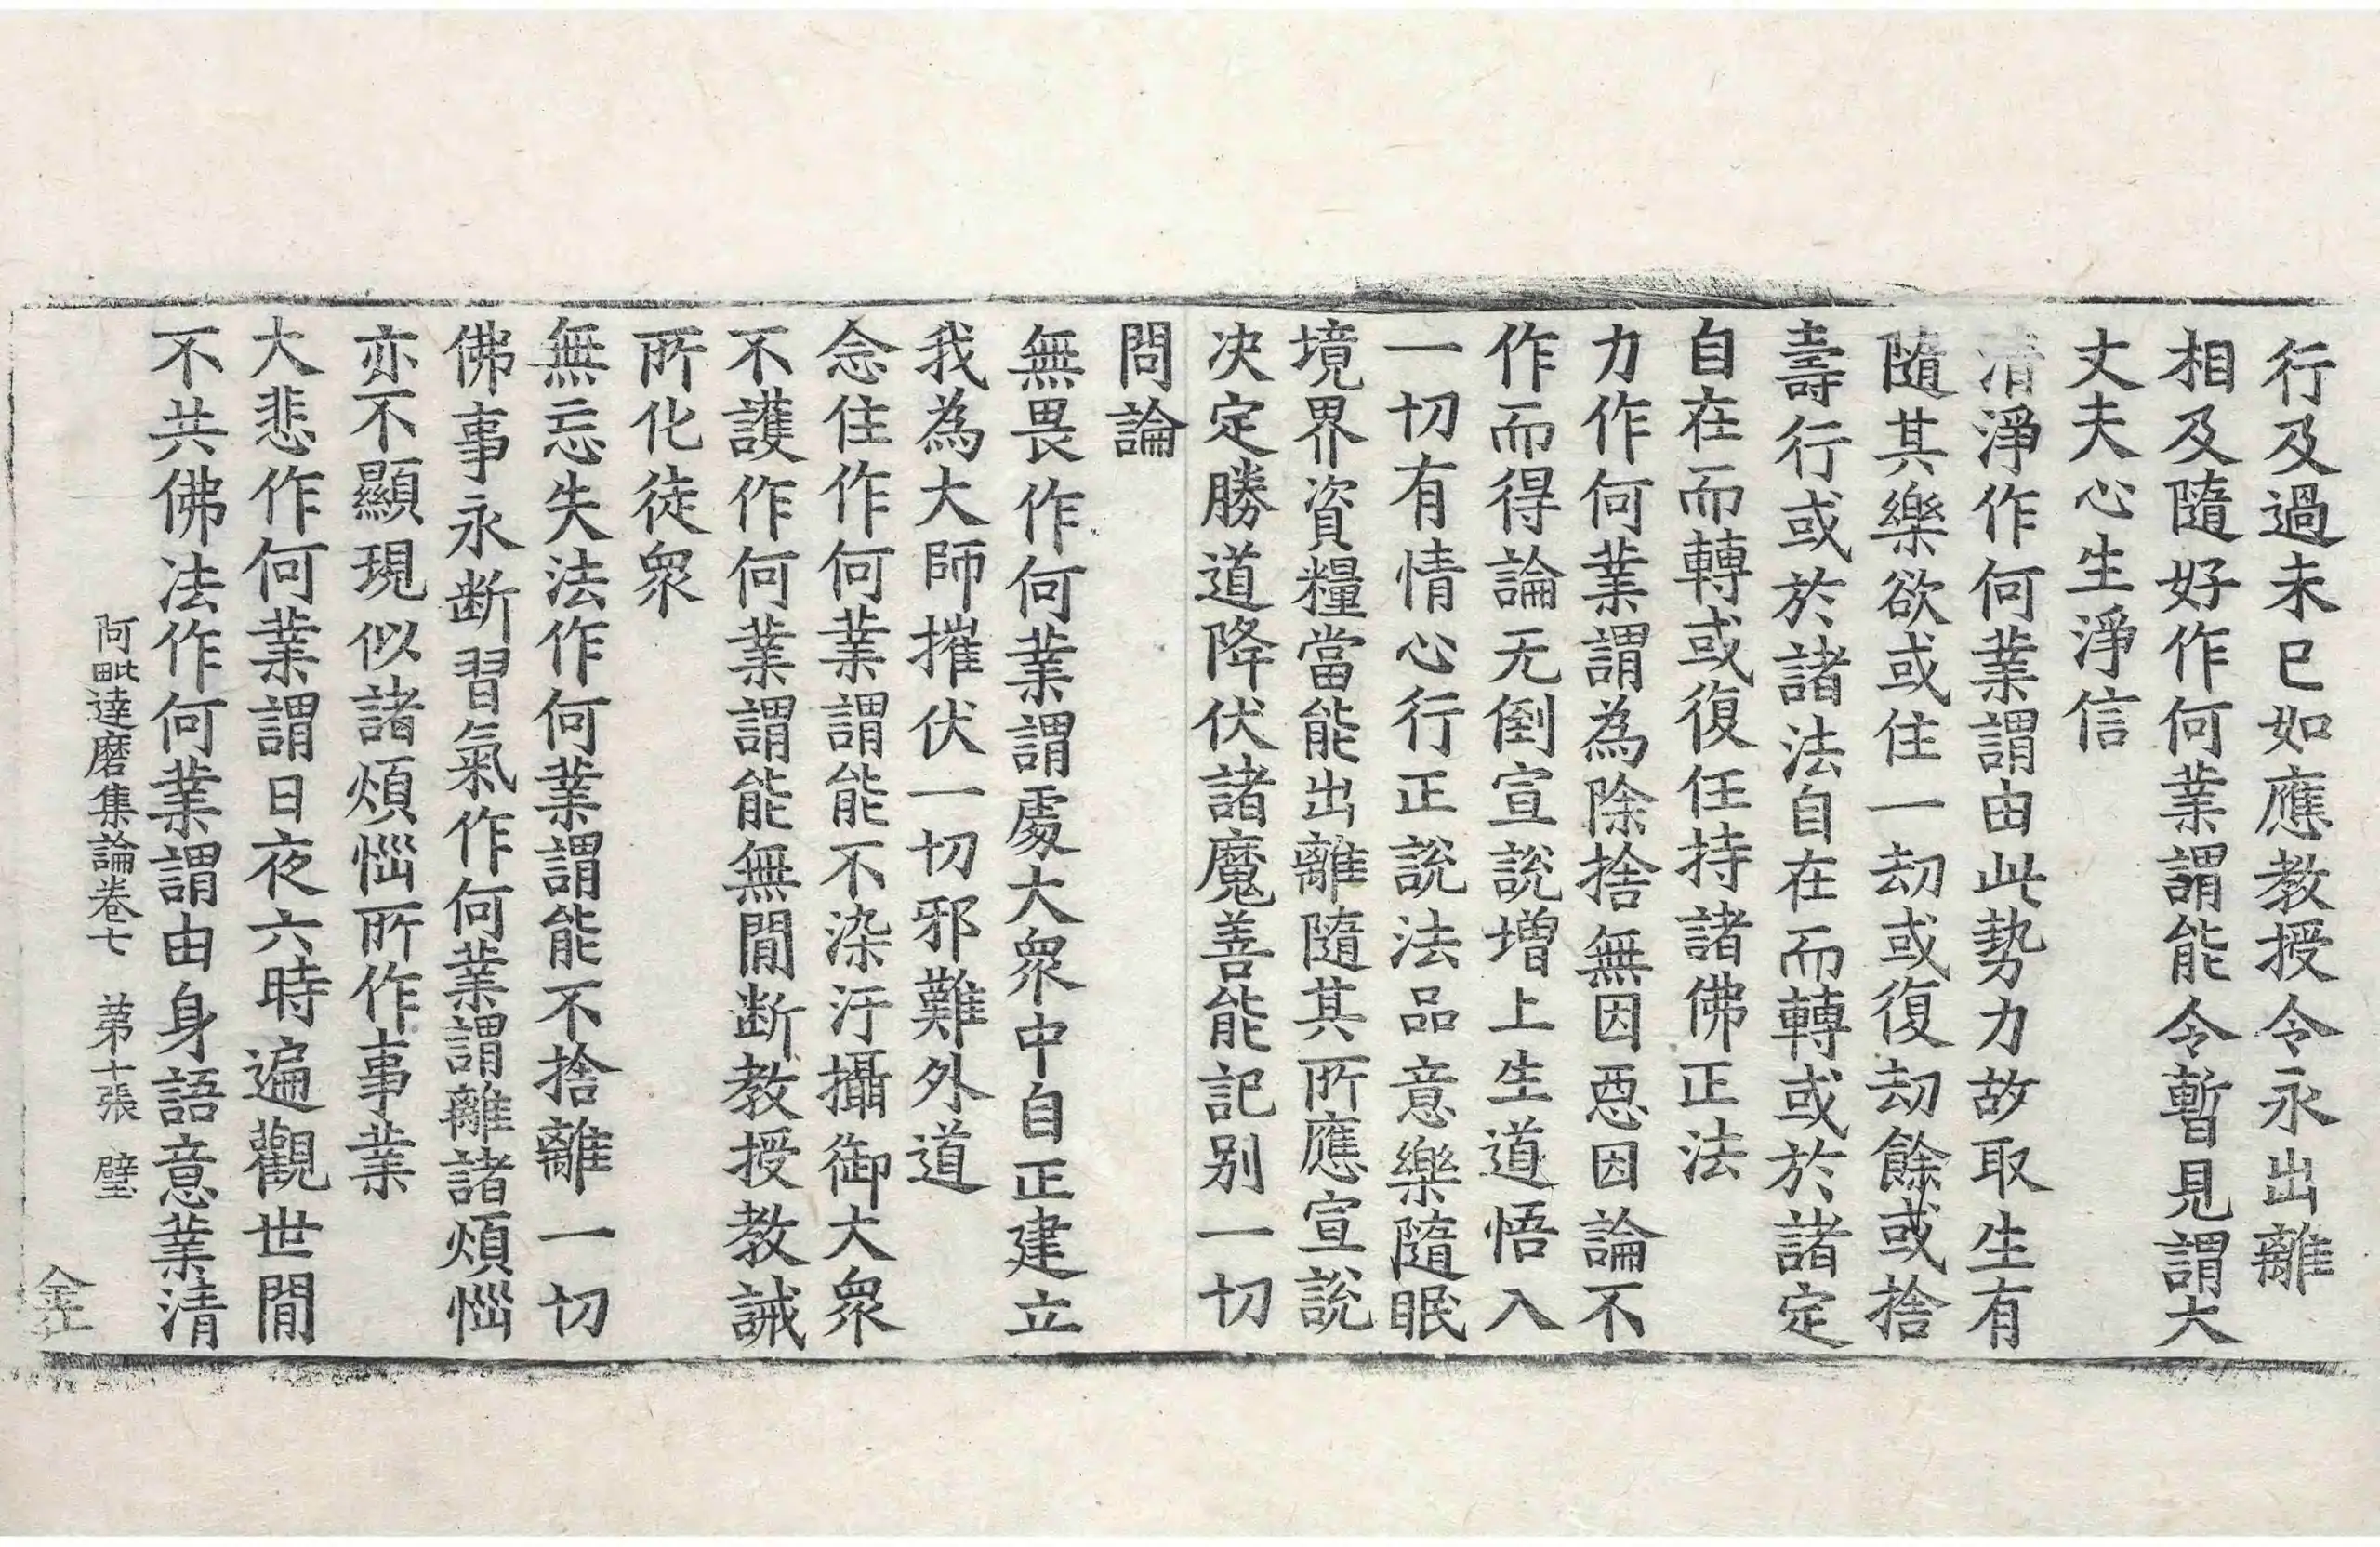 行及過未已如應教授令永出離
相及隨好作何業謂能令暫見謂大
丈夫心生淨信
清淨作何業謂由此勢力故取生有
隨其樂欲或住一劫或復劫餘或捨
壽行或於諸法自在而轉或於諸定
自在而轉或復任持諸佛正法
力作何業謂為除捨無因惡因論不
作而得論无倒宣說增上生道悟入
一切有情心行正說法品意樂隨眠
境界資糧當能出離隨其所應宣說
決定勝道降伏諸魔善能記別一切
問論
無畏作何業謂處大眾中自正建立
我為大師摧伏一切邪難外道
念住作何業謂能不染汙攝御大眾
不護作何業謂能無間斷教授教誡
所化徒眾
無忘失法作何業謂能不捨離一切
佛事永斷習氣作何業謂離諸煩惱
亦不顯現似諸煩惱所作事業
大悲作何業謂日夜六時遍觀世間
不共佛法作何業謂由身語意業清
阿毗達磨集論卷七 第十張 璧